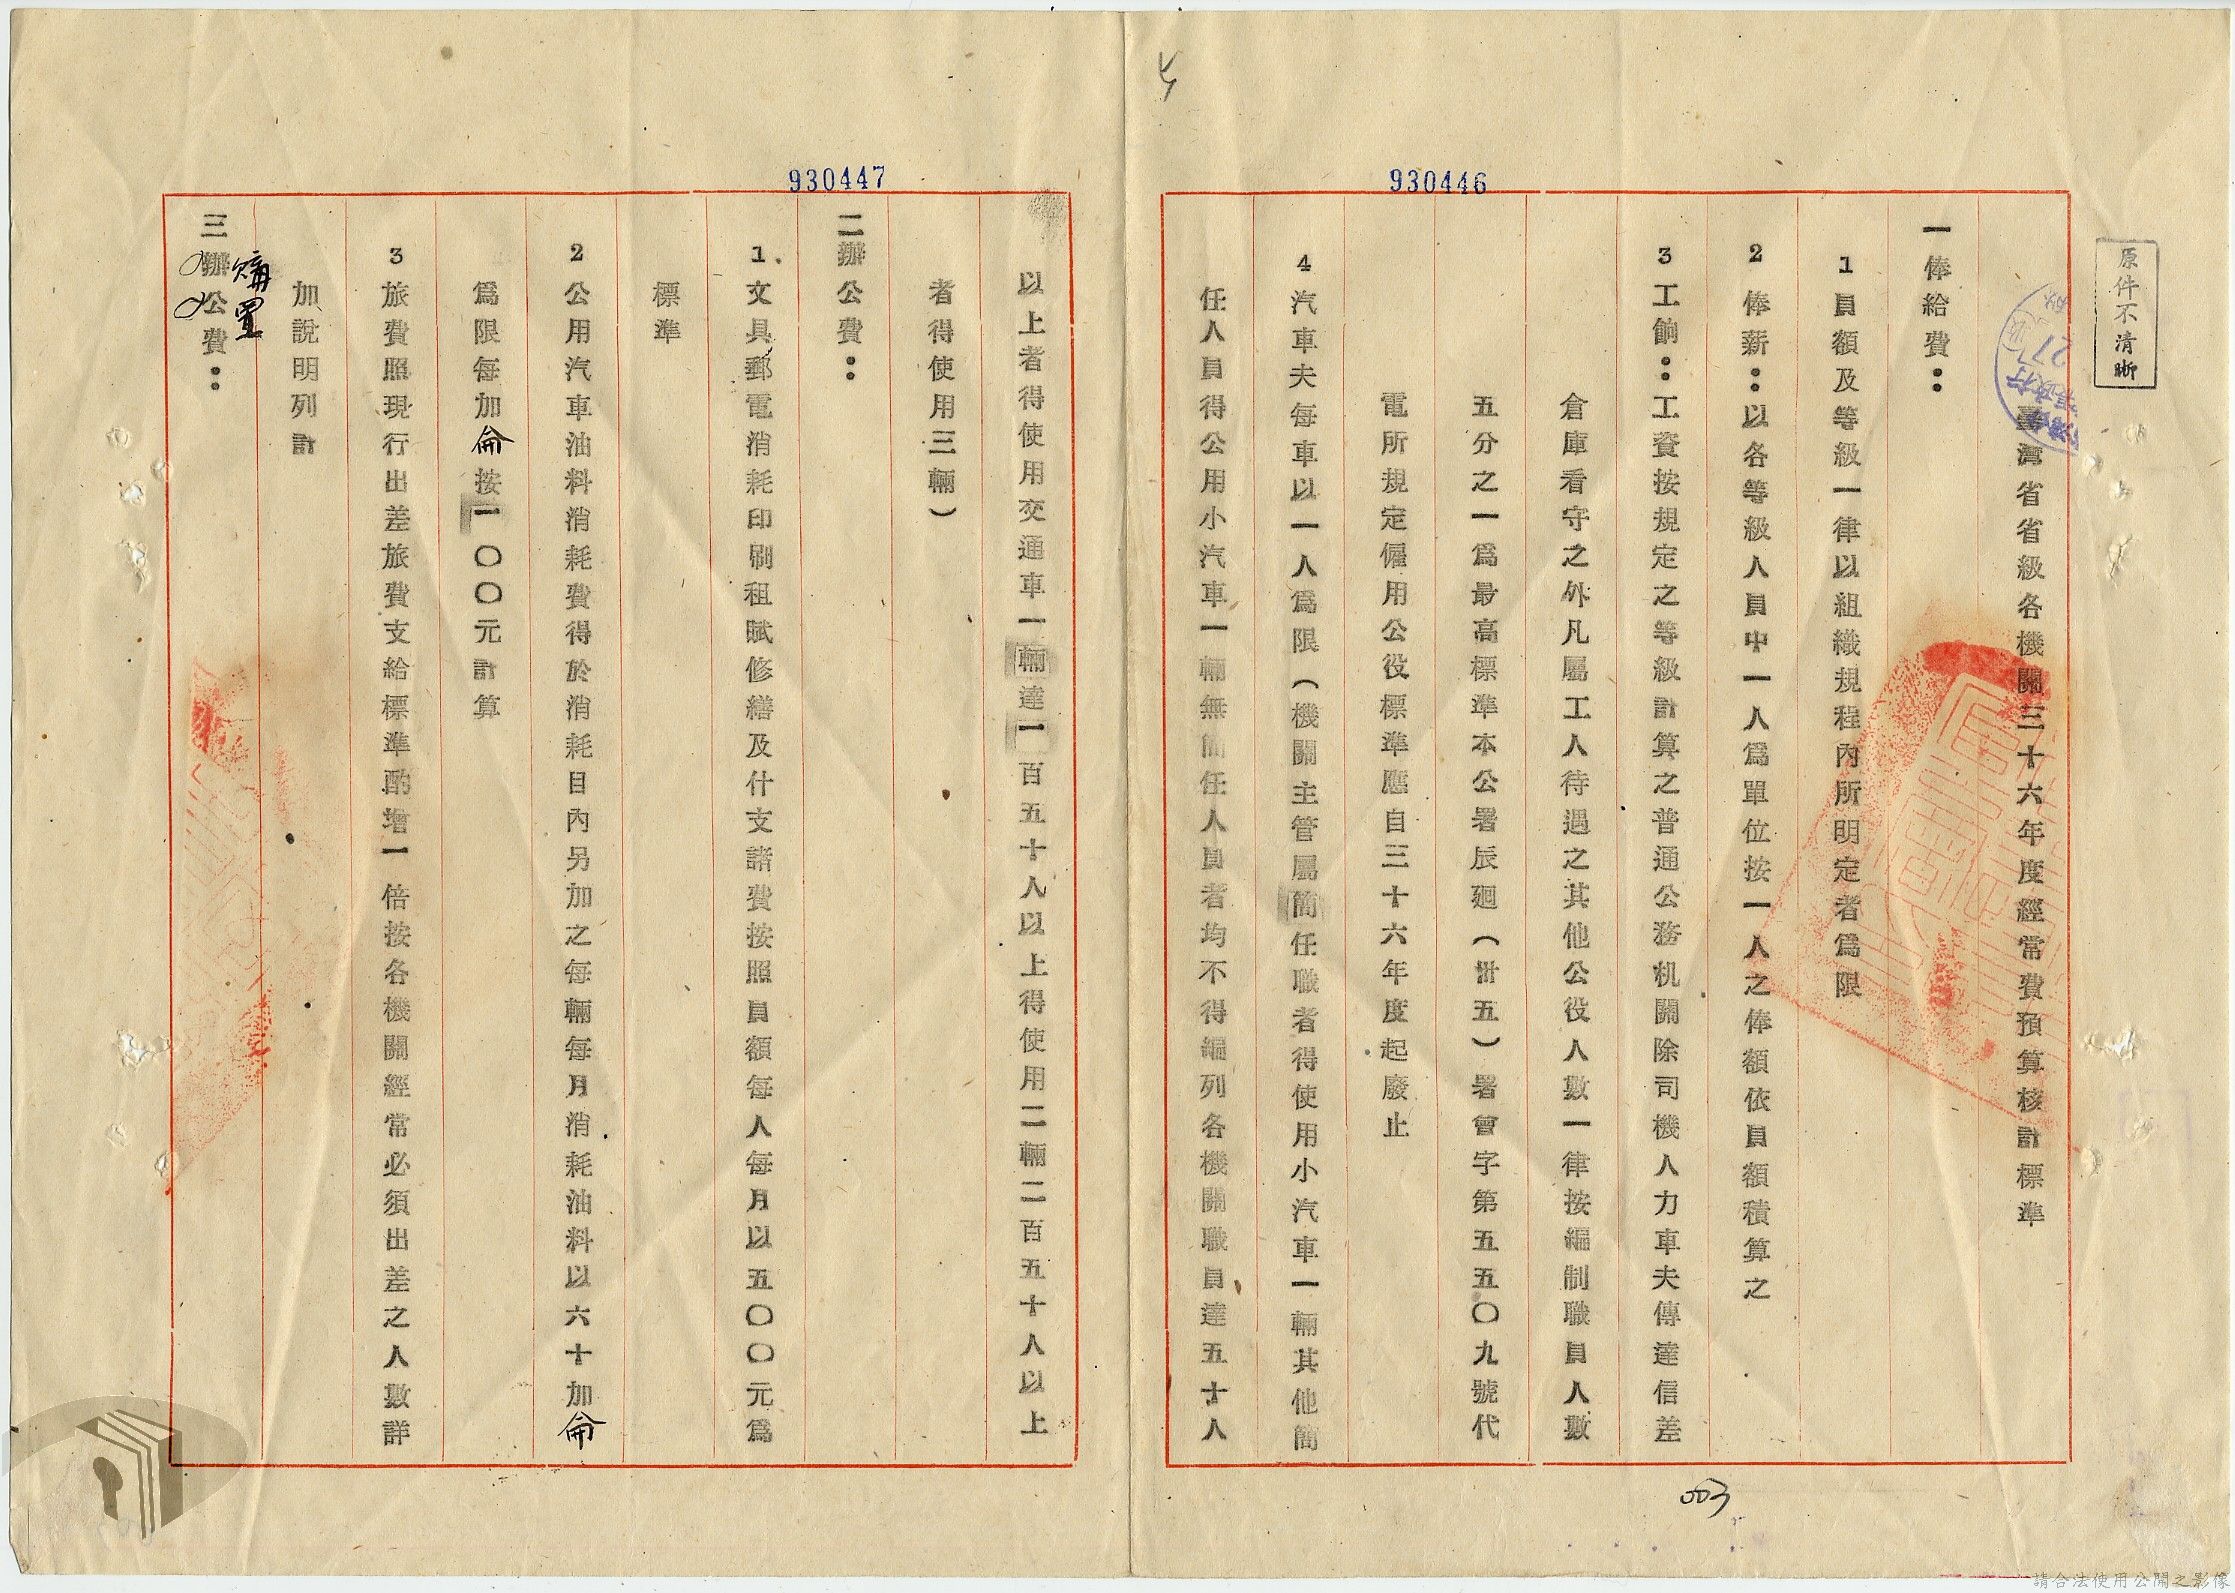 原件不清晰
臺灣省省級各機關三十六年度經常費預算核計標準
一俸給費：
1員額及等級一律以組織規程內所明定者為限
2俸薪：以各等級人員中一人為單位按一人之俸額依員額積算之
3工餉：工資按規定之等級計算之普通公務机關除司機人力車夫傳達信差
倉庫看守之外凡屬工人待遇之其他公役人數一律按編制職員人數
五分之一為最高標準本公署辰迴（卅五）署會字第五五〇九號代
電所規定僱用公役標準應自三十六年度起廢止
4汽車夫每車以一人為限（機關主管屬簡任職者得使用小汽車一輛其他簡
任人員得公用小汽車一輛無簡任人員者均不得編列各機關職員達五十人
930446
003
以上者得使用交通車一輛達一百五十人以上得使用二輛二百五十人以上
者得使用三輛）
二辦公費：
1文具郵電消耗印刷租賦修繕及什支諸費按照員額每人每月以五〇〇元為
標準
2公用汽車油料消耗費得於消耗目內另加之每輛每月消耗油料以六十加侖
為限每加侖按一〇〇元計算
3旅費照現行出差旅費支給標準酌增一倍按各機關經常必須出差之人數詳
加說明列計
購置
三辦公費：
930447
請合法使用公開之影像